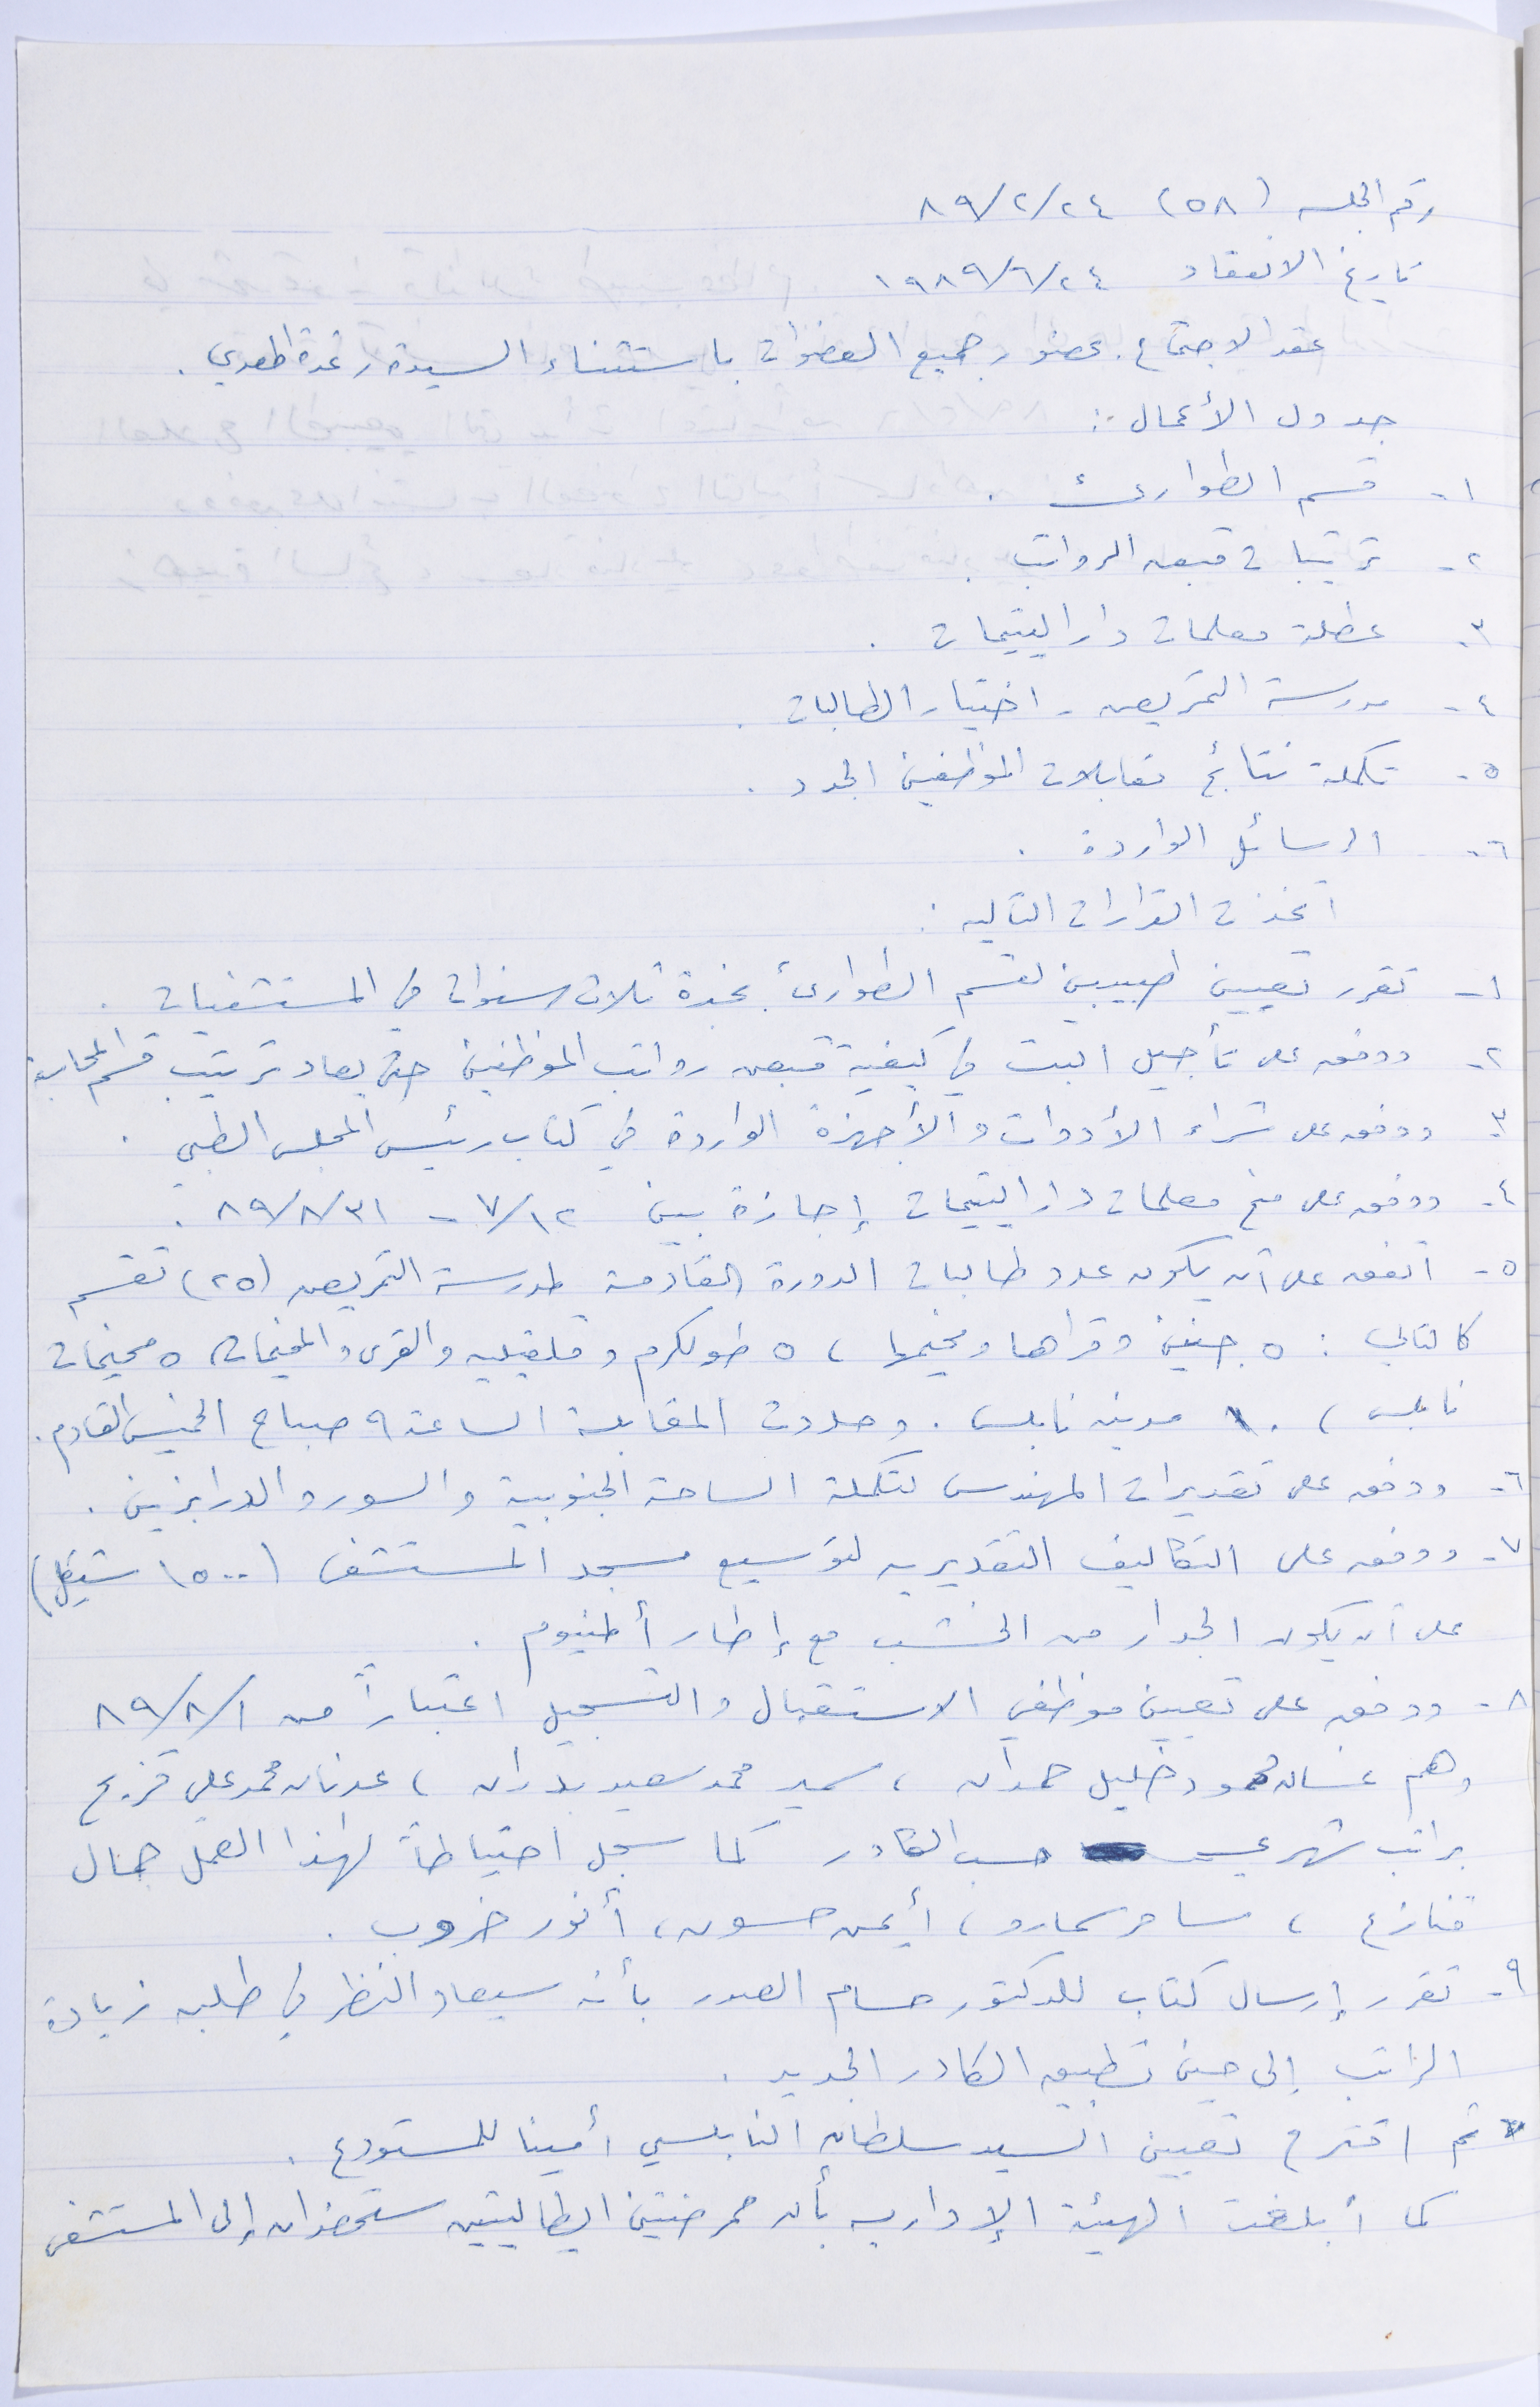 رقم الجلسه (٥٨) ٨٩/٢/٢٤
تاريخ الانعقاد ١٩٨٩/٦/٢٤
عقد الاجتماع بحضور جميع العضوات باستثناء السيدة رغدة المصري .
جدول الأعمال :
١- قسم الطوارئ .
٢- ترتيبات قبض الرواتب .
٣- عطلة معلمات دار اليتيمات .
٤- مدرسة التمريض - اختيار الطالبات .
٥- تكملة نتائج مقابلات الموظفين الجدد .
٦- الرسائل الواردة .
اتخذت القرارات التاليه :
١- تقرر تعيين طبيبين لقسم الطوارئ بخبرة ثلاث سنوات في المستشفيات .
٢- ووفق على تأجيل البت في كيفية قبض رواتب الموظفين حتى يعاد ترتيب قسم المحاسبة
٣- ووفق على شراء الأدوات والأجهزة الواردة في كتاب رئيس المجلس الطبي .
٤- ووفق على منح معلمات دار اليتيمات إجازة بين ٧/١٢ - ٨٩/٨/٣١ .
٥- اتفق على أن يكون عدد طالبات الدورة القادمة لمدرسة التمريض (٢٥) تقسم
كالتالي : ٥ جنين وقراها ومخيمها ، ٥ طولكرم وقلقيليه والقرى والمخيمات، ٥ مخيمات
نابلس ، ١٠ مدينه نابلس . وحددت المقابلة الساعة ٩ صباح الخميس القادم .
٦- ووفق على تقديرات المهندس لتكملة الساحة الجنوبية والسور والدرابزين .
٧- ووفق على التكاليف التقديريه لتوسيع مسجد المستشفى (١٥٠٠ شيكل)
على أن يكون الجدار من الخشب مع إطار ألمنيوم .
٨- ووفق على تعيين موظفي الاستقبال والتسجيل اعتباراً من ٨٩/٨/١
وهم غسان محمود خليل حمدان ، سمير محمد سعيد بدران ، عدنان محمد علي قزح
براتب شهري حسب الكادر كما سجل احتياطاً لهذا العمل جمال
قنازع ، سامر سمارو ، أيمن حسون ، أنور خروب .
٩- تقرر إرسال كتاب للدكتور حسام الصدر بأنه سيعاد النظر في طلبه زيادة
الراتب إلى حين تطبيق الكادر الجديد .
ثم اقترح تعيين السيد سلطان النابلسي أمينا للمستودع .
كما أبلغت الهيئة الإداريه بأن ممرضتين ايطاليتين ستحضران إلى المستشفى